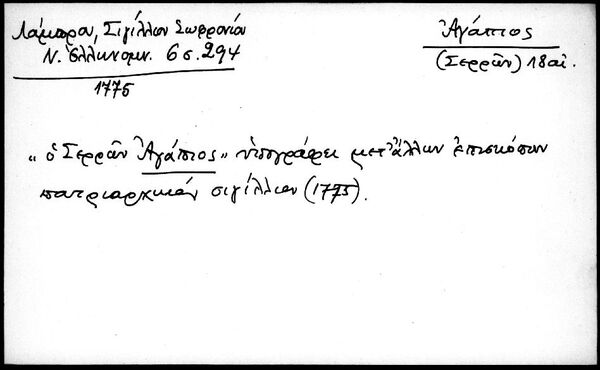 Λάμπρου, Σιγίλλιον Σωφρονίου
Ν. Ἑλληνομν. 6 σ. 294
1775
Ἀγάπιος
(Σερρῶν) 18 αἰ.
"ὁ Σερρῶν Ἀγάπιος" ὑπογράφει μετ' ἄλλων ἐπισκόπων
πατριαρχικόν σιγίλλιον (1775).